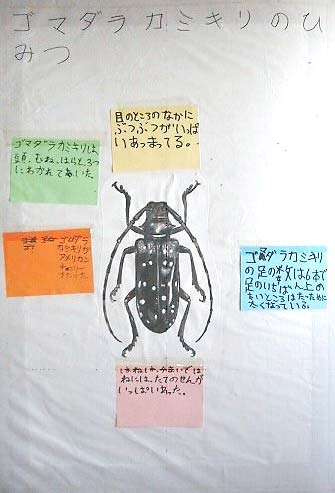 ゴマダラカミキリのひ
みつ
目のところのなかに
ぶつぶつがいっぱ
いあつまってる。
ゴマダラカミキリは、
頭、むね、はらと、3つ
にわかれてあいた。
ゴマダラ
カミキリが
アメリカン
チェリー
ゴマダラカミキリ
の足の数は6本で
足のいちばん上の
太くなっている。
ねには、たてのせんが
いっぱいあった。